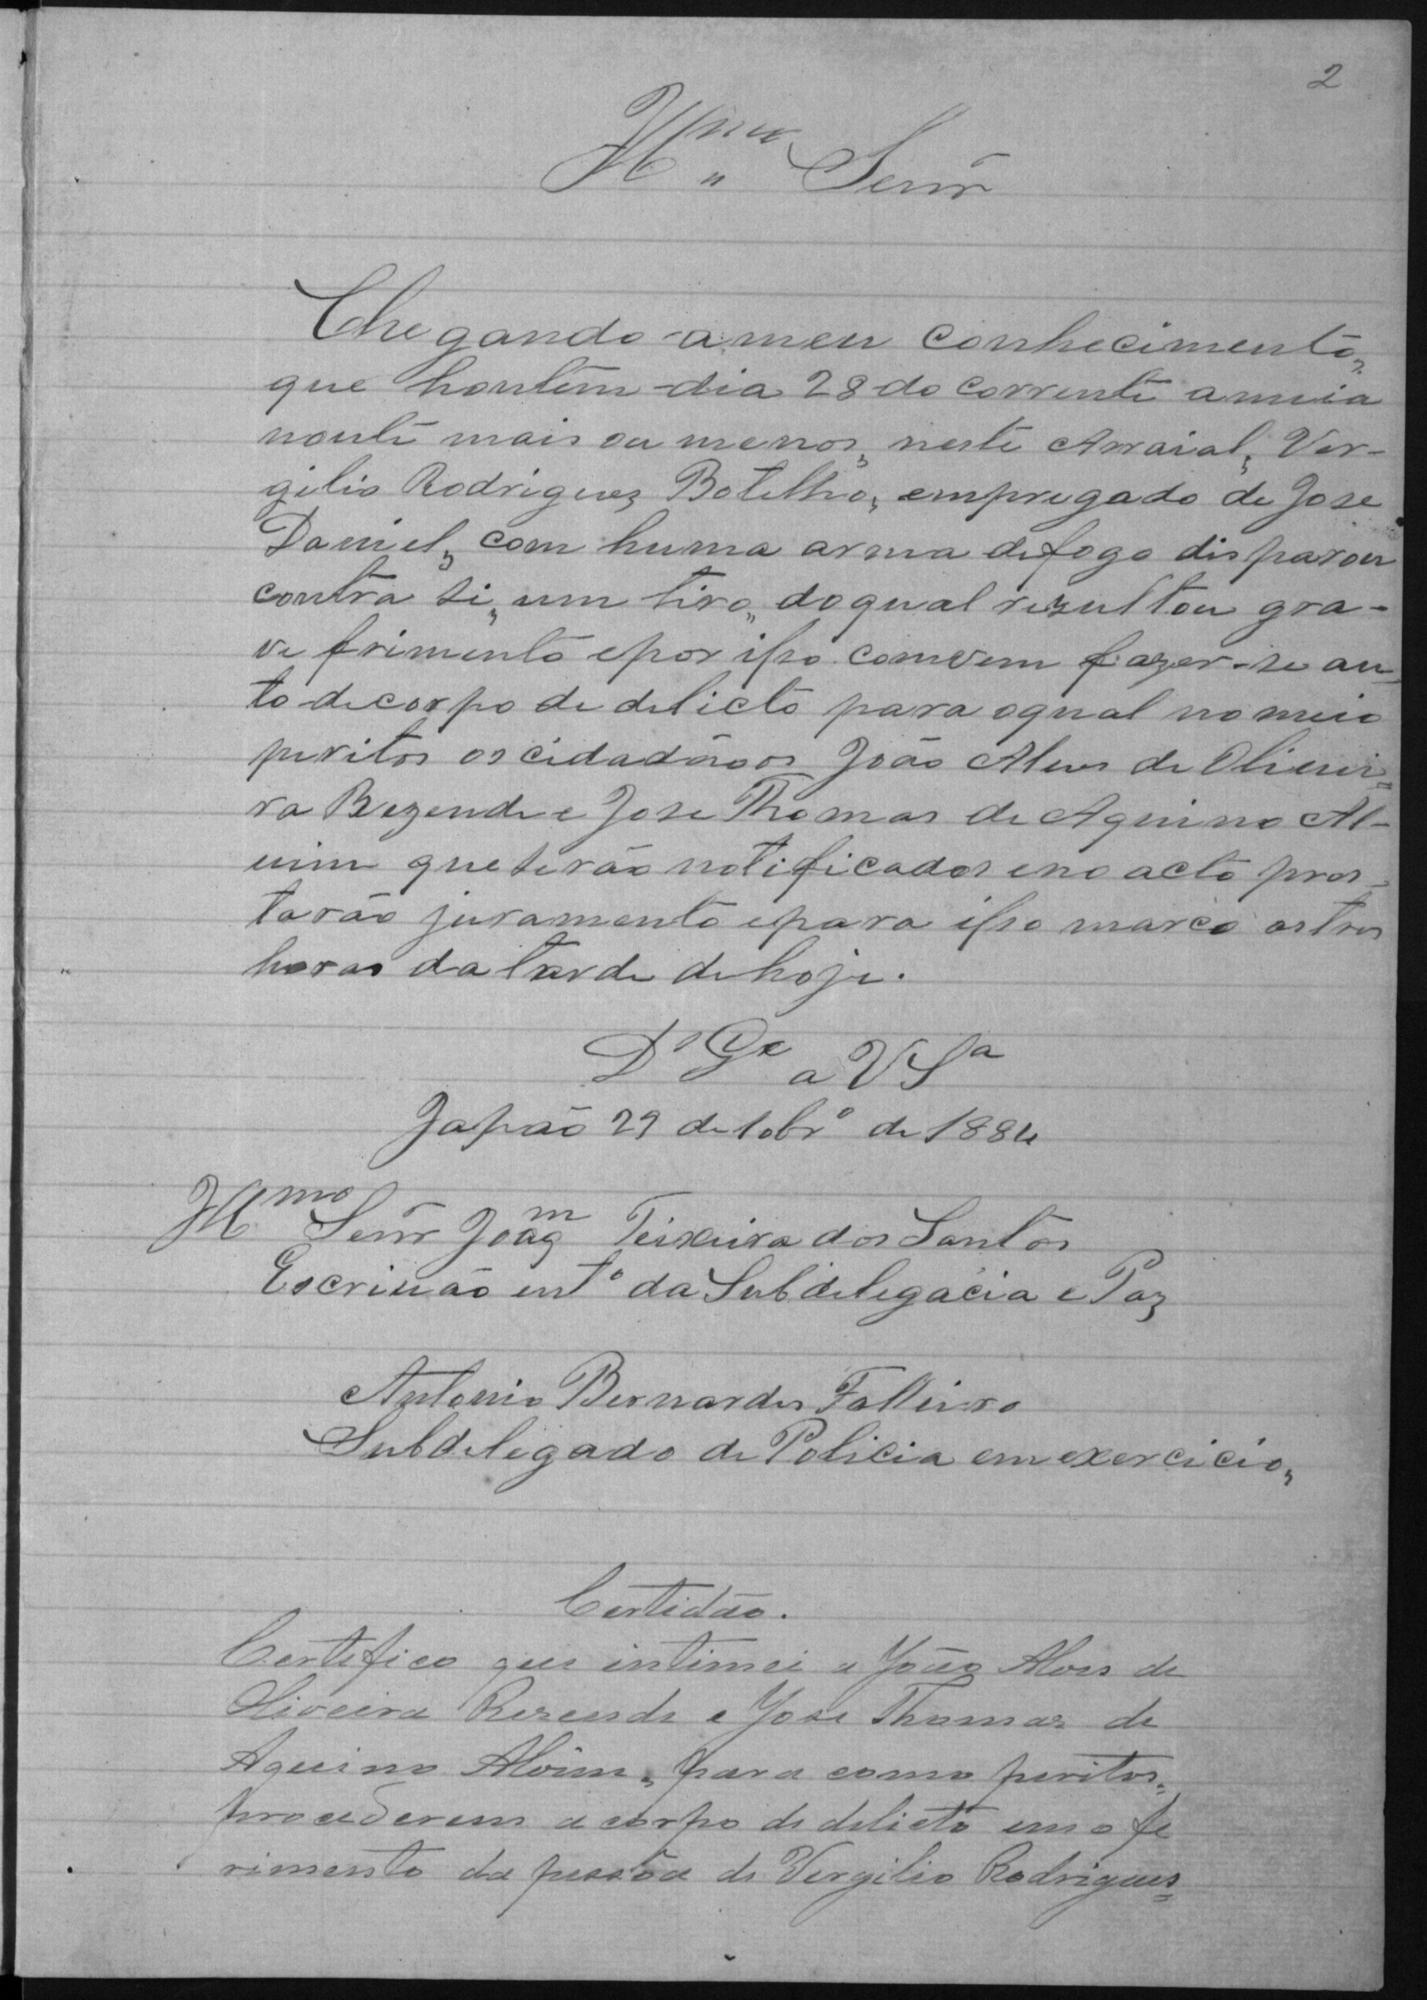 2
Illmo „ Senr̃
Chegando a meu conhecimento,
que hontem dia 28 do corrente a meia
noute mais ou menos, neste Arraial, Ver-
gilio Rodriguez Botelho, empregado de Jose
Daniel, com huma arma de fogo disparou
contra si, um tiro, do qual rezultou gra-
ve frimento e por isso comvem fazer-se au
to de corpo de delicto para o qual nomeio
peritos os cidadãoos João Alves de Oliuei=
ra Rezende e Jose Thomas de Aquino Al-
uim que serão notificados e no acto pres-
tarão juramento e para isso marco as tres
horas da tarde de hoje.
Ds Ge a V Sa
Japão 29 de 10brº de 1884
Illmo Senr̃ Joaqm Teixeira dos Santos
Escriuão intº da Subdelegacia e Paz
Antonio Bernardes Falleiro
Subdelegado de Policia em exercicio,
Certidão.
Certifico que intimei a João Alves de
Oliveira Rezende e Jose Thomaz de
Aquino Alvim, para como peritos,
procederem a corpo de delicto em o fe
rimento da pessôa de Vergilio Rodrigues=